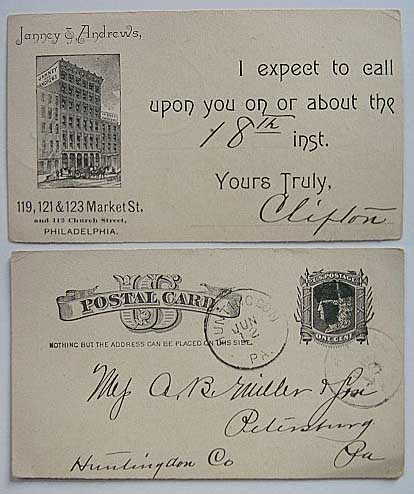 Janney & Andrews,
JANNEY
ANDREWS
119, 121 & 123 Market St.
and 112 Church Street,
PHILADELPHIA.
I expect to call
upon you on or about the
18th inst.
Yours Truly,
Clifton
US
POSTAL CARD.
NOTHING BUT THE ADDRESS CAN BE PLACED ON THIS SIDE.
JUN
12
PA.
U.S. POSTAGE
ONE CENT
Mess A. B. Miller & Son
Petersburg
Huntingdon Co Pa